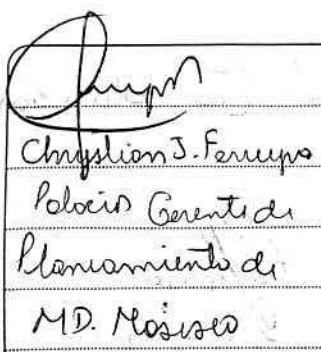 Chrystian J. Ferreyro
Palacios Gerente de
Planeamiento de
MD.